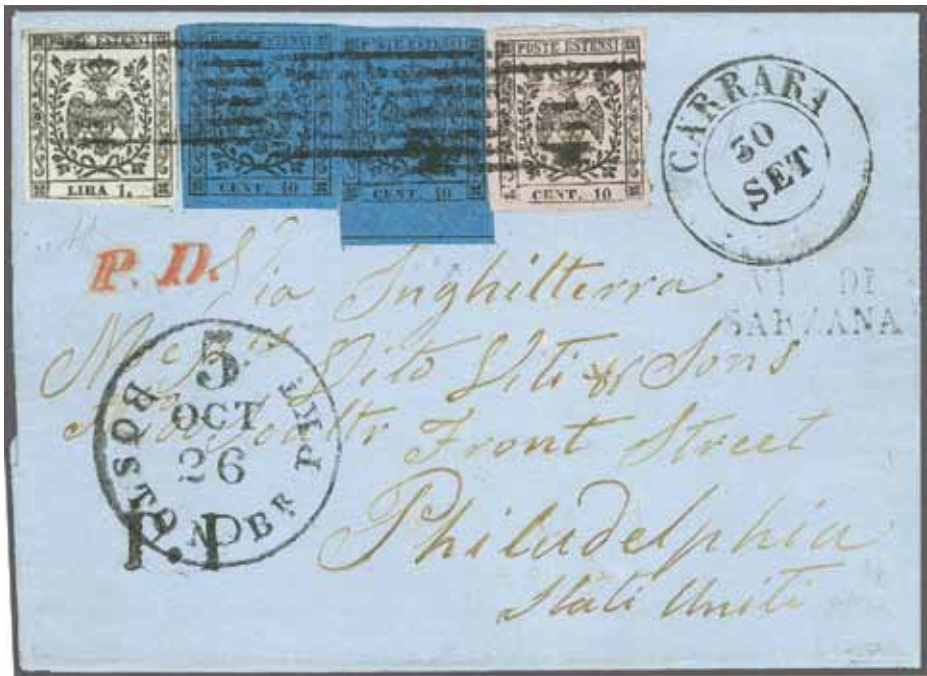 POSTE ESTENSI
LIRA 1.
POSTE ESTENSI
CENT. 40
POSTE ESTENSI
CENT. 40
POSTE ESTENSI
CENT. 10
CARRARA
30
SET
P. D.
Via Inghilterra
VI DI
SARZANA
Vito Viti & Sons
Front Street
Philadelphia
Stati Uniti
5
OCT
26
BOSTON BR. PKT
P.